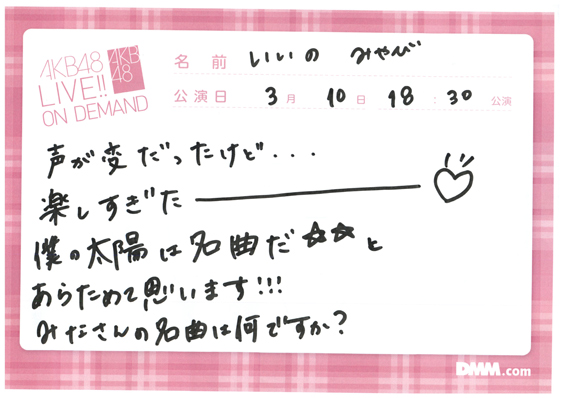 AKB48
LIVE!!
ON DEMAND
AKB
48
名前 いいの みやび
公演日 3月 10日 18:30 公演
声が変だったけど...
楽しすぎた――――♡
僕の太陽は名曲だ☆☆と
あらためて思います!!!
みなさんの名曲は何ですか?
DMM.com